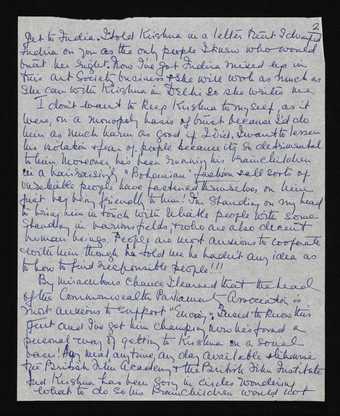 2
get to India. I told Krishna in a letter that I should
India on you as the only people I knew who would
treat her right. Now I've got Indira mixed up in
this Art Society business & she will work as much as
she can with Krishna in Delhi so she writes me.
I don't want to keep Krishna to myself, as it
were, on a monopoly basis of trust because I'd do
him as much harm as good if I did. I want to lessen
his isolation & fear of people because it's so detrimental
to him. Moreover he's been running his brainchildren
in a hairraisingly "Bohemian" fashion & all sorts of
unreliable people have fastened themselves on him
just by being friendly to him! I'm standing on my head
to bring him in touch with reliable people with some
standing in various fields & who are also decent
human beings. People are most anxious to cooperate
with him though he told me he hadn't any idea as
to how to find responsible people!!!
By miraculous chance I learned that the head
of the Commonwealth Parliament Association is
most anxious to support "Envoy". I used to know this
gent and I've got him champing who he's found a
personal way of getting to Krishna on a social
basis! Any meal anytime, any day available. Likewise
the British Film Academy & the British Film Institute
and Krishna has been going in circles wondering
what to do so his brainchildren would not